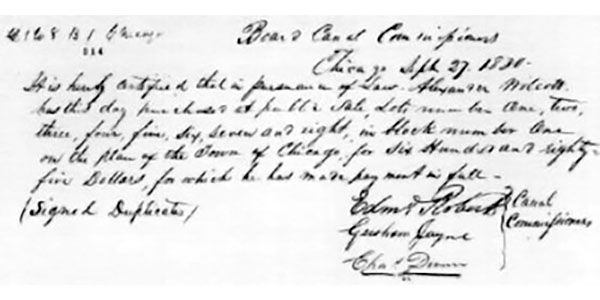 L 1 to 8 B 1 Chicago
Board Canal Commissioners
Chicago Sept. 27. 1830-
It is hereby certified that in pursuance of Law Alexander Wolcott
has this day purchased at public Sale, Lots number One, two,
three, four, five, six, seven and eight, in block number One
on the plan of the Town of Chicago, for Six Hundred and eighty-
five Dollars, for which he has made payment in full-
(Signed Duplicates)
Edmd Roberts
Gershom Jayne
Chas. Dunn
Canal
Commissioners